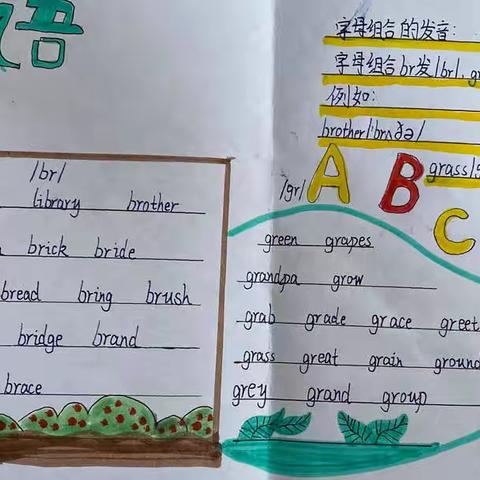 语
字母组合的发音:
字母组合br发/br/, g
例如:
brother/'brʌðə/
grass/g
/br/
library brother
brick bride
bread bring brush
bridge brand
brace
/gr/
A B C
green grapes
grandpa grow
grab grade grace greet
grass great grain ground
grey grand group